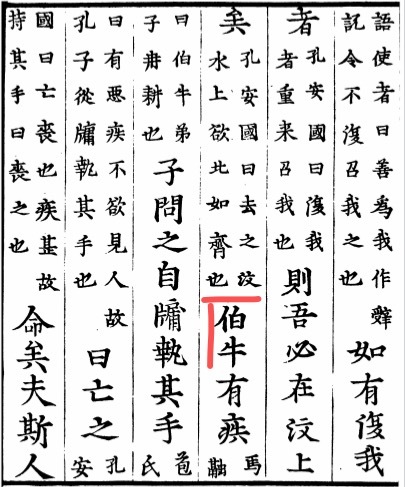 語使者曰善為我作辤説令不復召我之也如有復我
者孔安國曰復我者重来召我也則吾必在汶上
矣孔安國曰去之汶水上欲北如齊也伯牛有疾馬融
曰伯牛弟子冉耕也子問之自牖執其手苞氏
曰有惡疾不欲見人故孔子從牖執其手也曰亡之孔安
國曰亡喪也疾甚故持其手曰喪之也命矣夫斯人